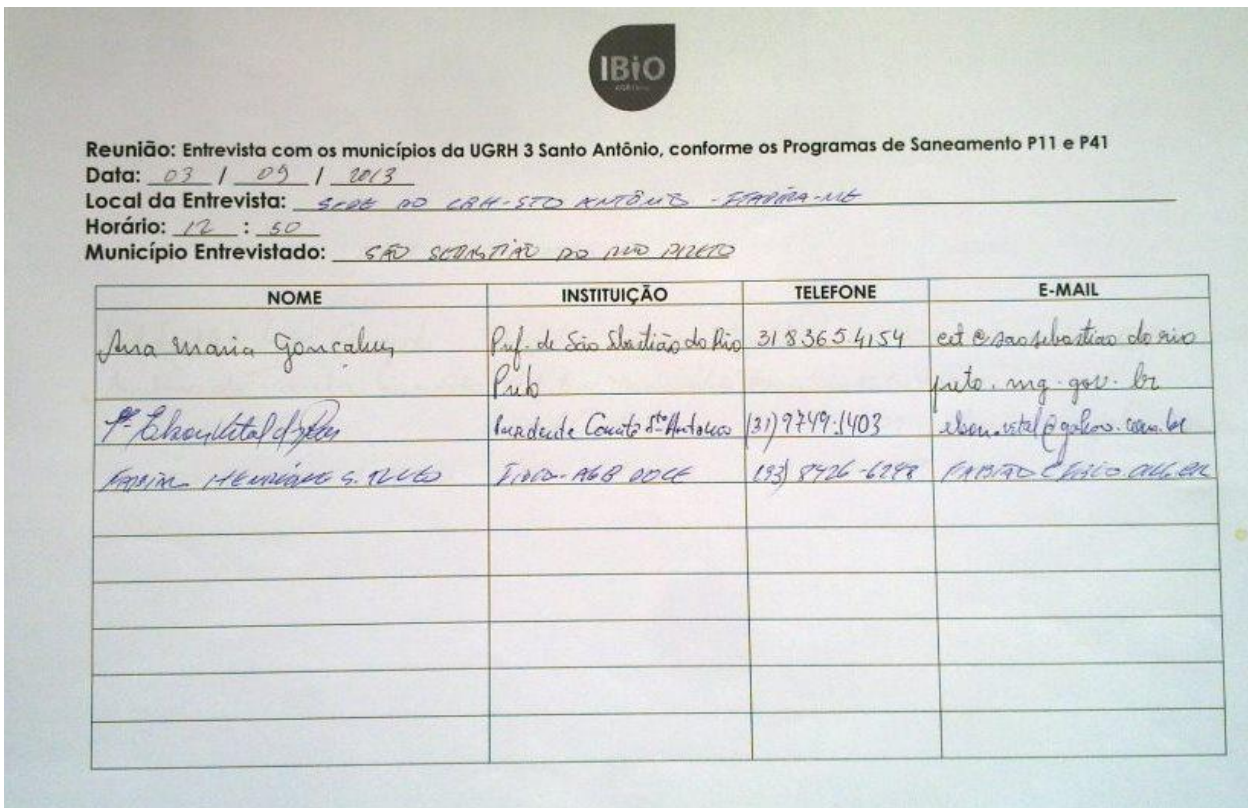 IBiO
Reunião: Entrevista com os municípios da UGRH 3 Santo Antônio, conforme os Programas de Saneamento P11 e P41
Data: 03 / 09 / 2013
Local da Entrevista: SEDE DO CBH-STO ANTÔNIO - ITABIRA-MG
Horário: 12 : 50
Município Entrevistado: SÃO SEBASTIÃO DO RIO PRETO
NOME INSTITUIÇÃO TELEFONE E-MAIL
Ana Maria Gonçalves Pref. de São Sebastião do Rio 3183654154 @saosebastiaodorio
Preto preto.mg.gov.br
Presidente Comitê Sto Antonio (31) 9749-1403
HENRIQUE S. IBIO-AGB DOCE